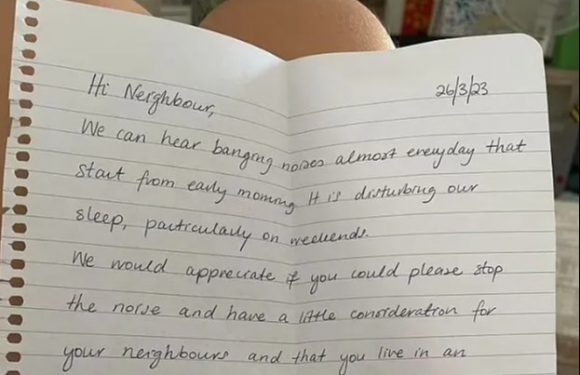 26/3/23
Hi Neighbour,
We can hear banging noises almost everyday that
start from early morning. It is disturbing our
sleep, particularly on weekends.
We would appreciate if you could please stop
the noise and have a little consideration for
your neighbours and that you live in an